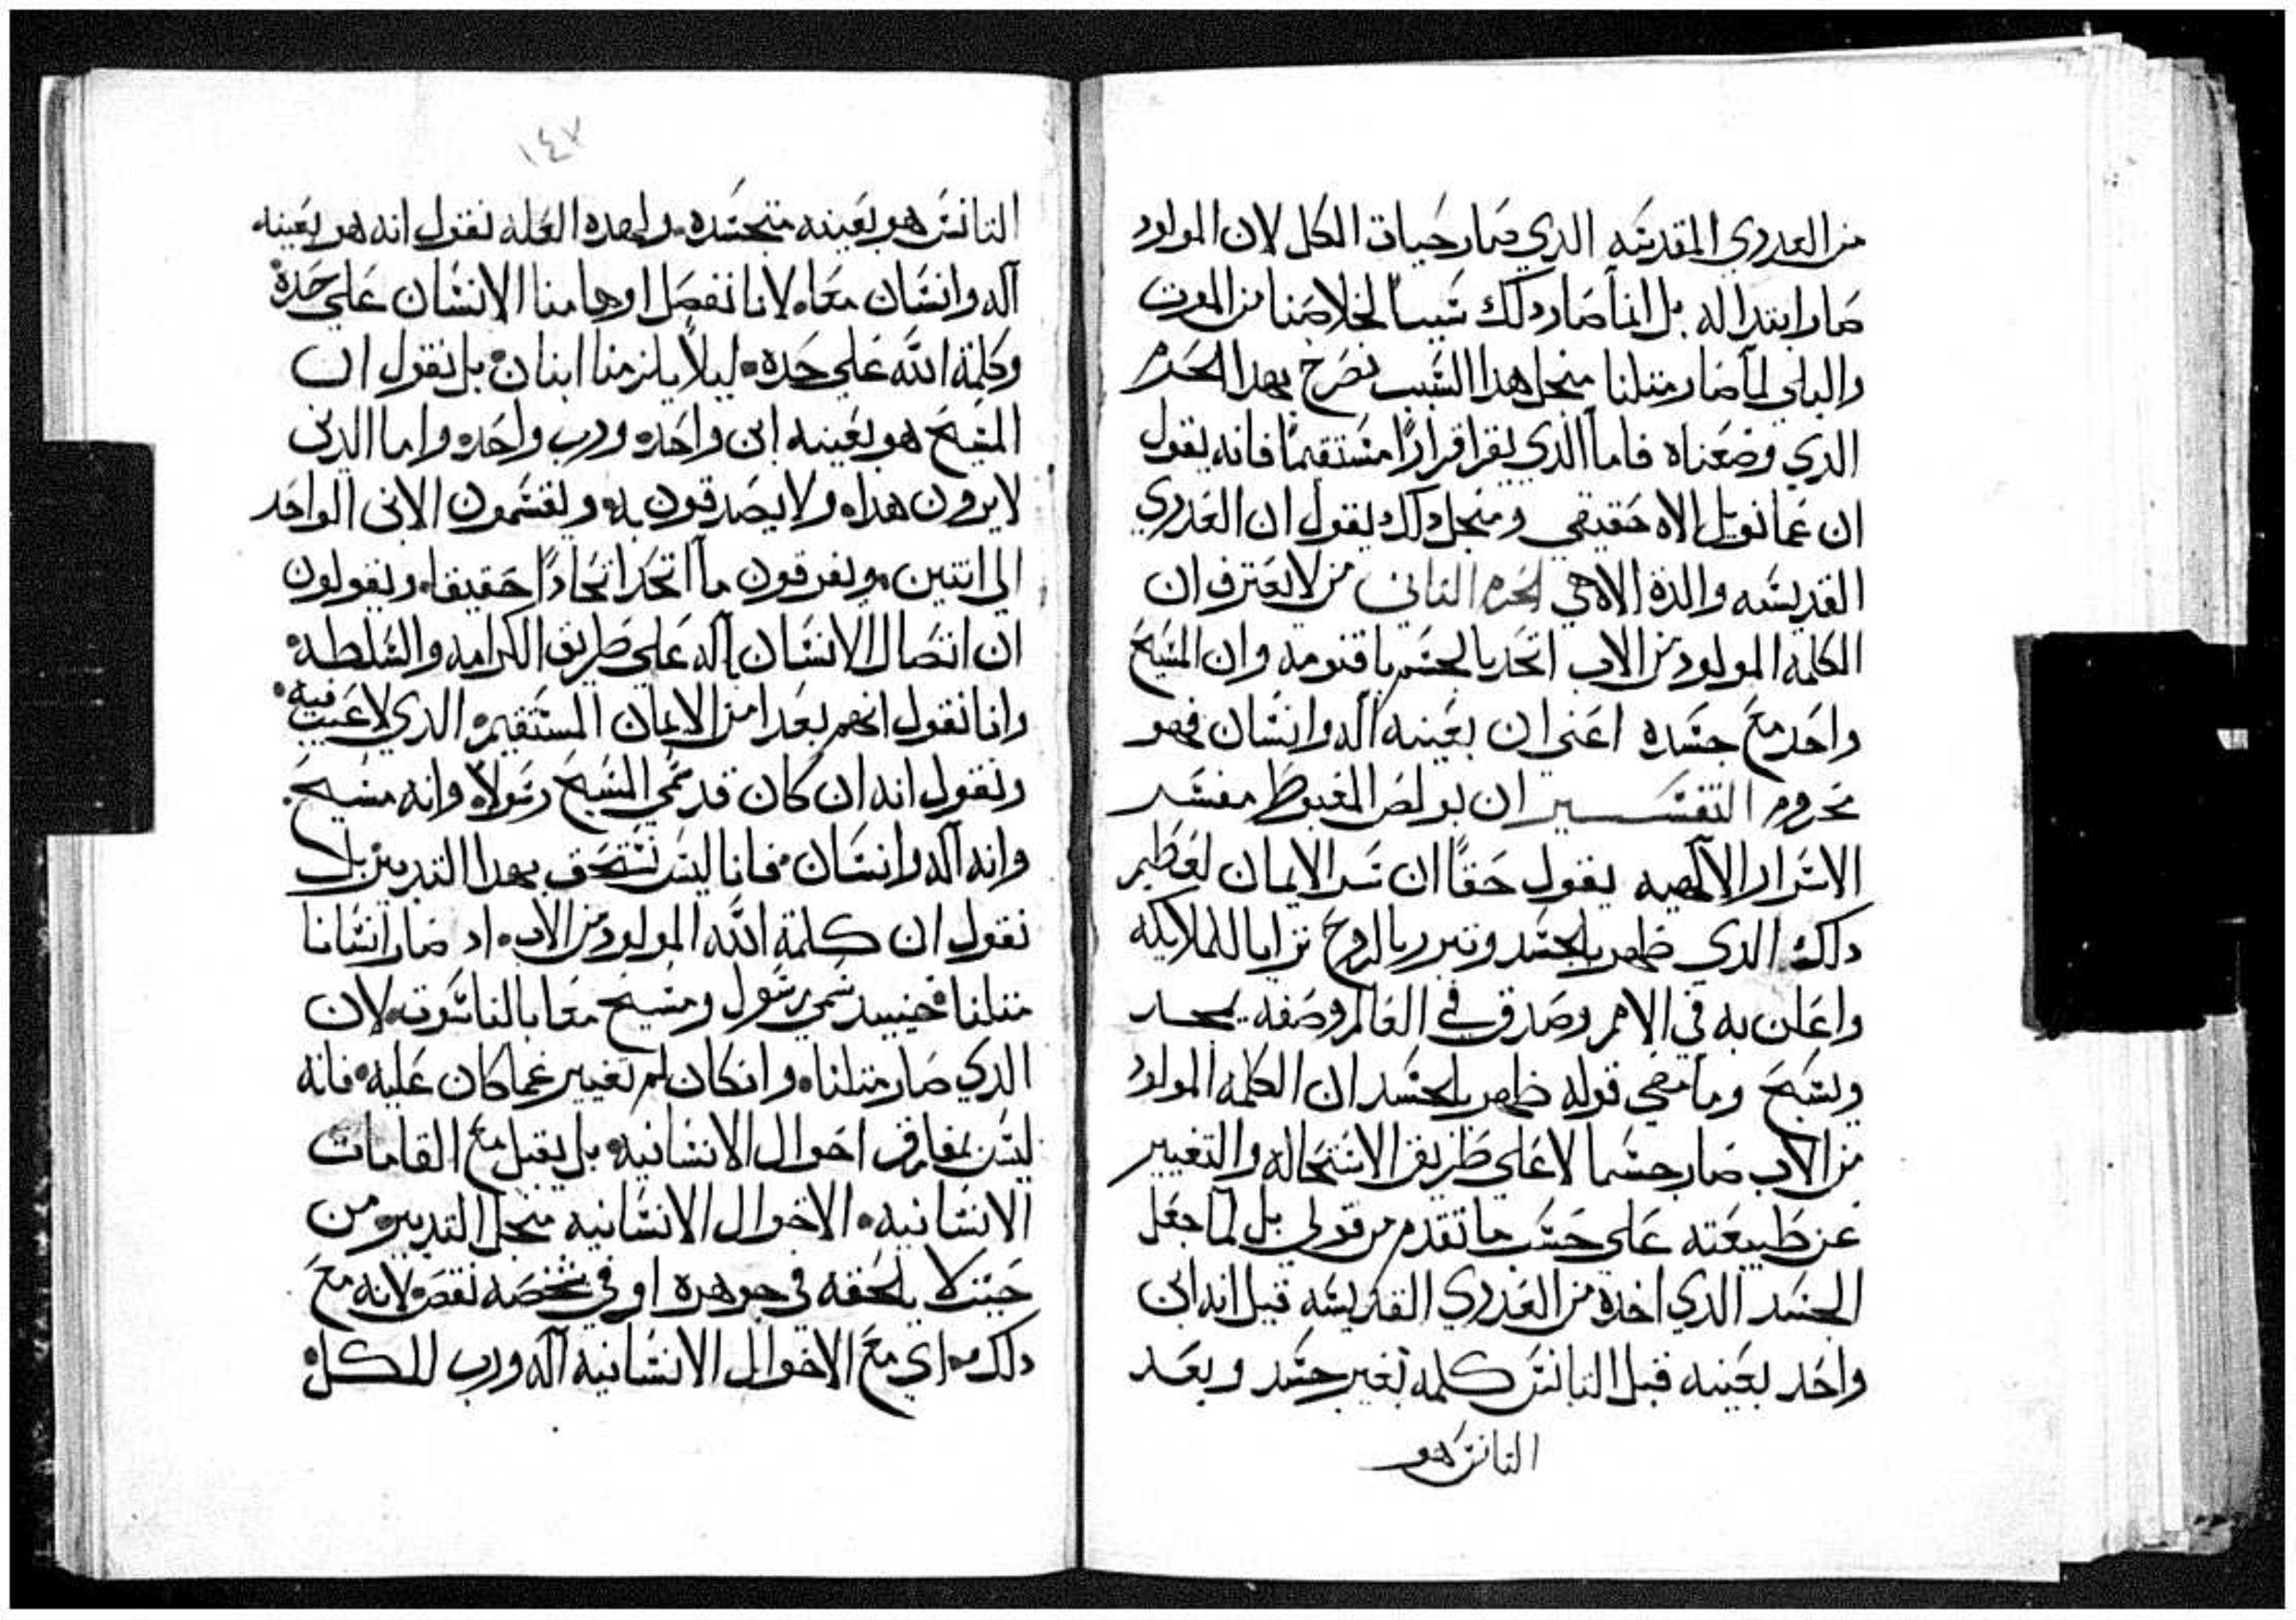 من العدري المقدسه الدي صار حيات الكل لان المولود
صار ابتدا له بل انما صار دلك سببا لخلاصنا من الموت
والبلي لما صار متلنا منجل هدا السبب نصرح بهدا الحرم
الدي وضعناه فاما الذي يقر اقرارًا مستقيمًا فانه يقول
ان عمانويل الاه حقيقي ومنجل دلك يقول ان العدري
القديسه والدة الاهي الحرم التاني من لا يعترف ان
الكلمه المولود من الاب اتحد بالجسم باقنومه وان المسيح
واحد مع جسده اعني ان بعينه اله وانسان فهو
محروم التفسير ان بولص المغبوط مفسر
الاسرار الالهيه يقول حقًا ان سر الايمان لعظيم
دلك الدي ظهر بالجسد وتبرر بالروح تراياا للملايكه
واعلن به في الامم وصدق في العالم وصفه بمجد
ويسبح وما معني قوله ظهر بالجسد ان الكلمه المولود
من الاب صار جسما لا على طريق الاستحاله والتغيير
عن طبيعته على حسب ما تقدم من قولي بل لما جعل
الجسد الدي اخده من العدري القديسه قيل انه ابن
واحد بعينه قبل التانس كلمه بغير جسد وبعد
التانس هو
١٤٧
التانس هو بعينه متجسده ولهده العله نقول انه هو بعينه
اله وانسان معا لانا نفصل اوهامنا الانسان على حدة
وكلمة الله على حده ليلا يلزمنا ابنان بل نقول ان
المسيح هو بعينه ابن واحد ورب واحد واما الدين
لا يرون هدا ولا يصدقون به ويقسمون الابن الواحد
الى اتنين ويفرقون ما اتحد اتحادًا حقيقا ويقولون
ان اتصال الانسان باله على طريق الكرامه والسلطة
وانا نقول انهم بعدا من الايمان المستقيم الدي لا عيب فيه
ونقول انه ان كان قد سمي المسيح رسولا وانه مسيح
وانه اله وانسان فانا ليس نستحق بهدا التدبير بل
نقول ان كلمة الله المولود من الاب اد صار انسانا
متلنا فحينيد سمي رسول ومسيح معا بالناسوت لان
الدي صار متلنا وانكان لم تغيير عما كان عليه فانه
ليس يفارق احوال الانسانيه بل يقبل مع القامات
الانسانيه الاحوال الانسانيه منجل التدبير من
حيت لا يلحقه في جوهره او في شخصه نقص لانه مع
دلك اي مع الاحوال الانسانيه اله ورب للكل